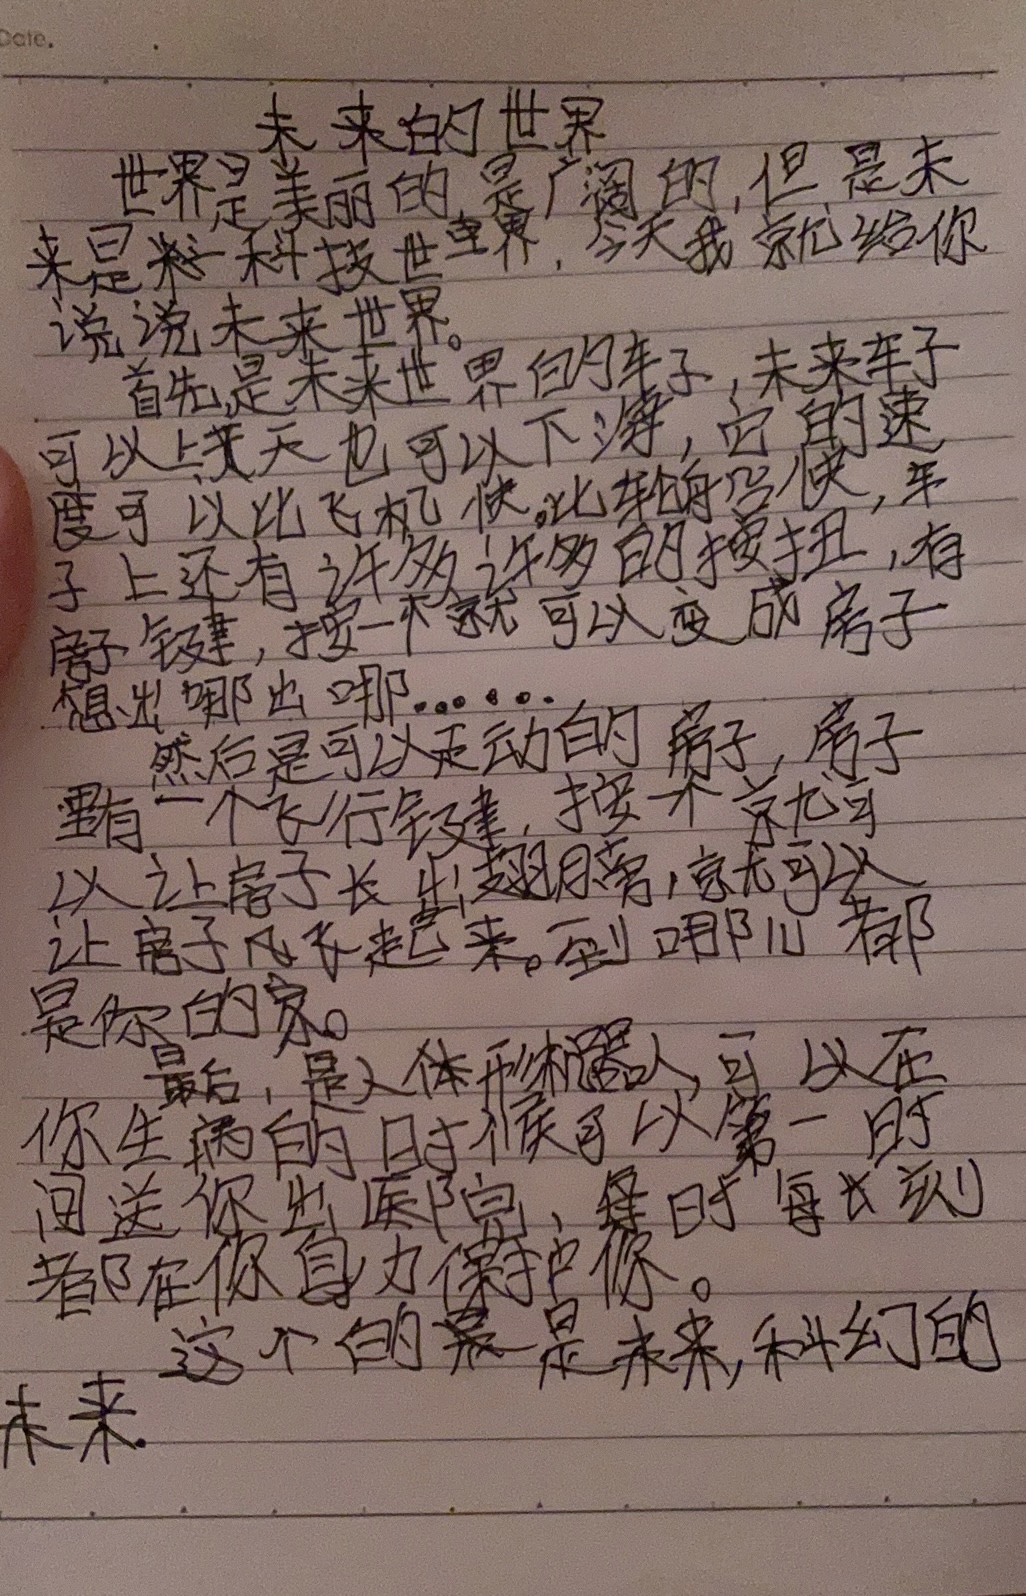 Date.
未来的世界
世界是美丽的,是广阔的,但是未
来是科技世界,今天我就给你
说说未来世界。
首先,是未来世界的车子,未来车子
可以上天也可以下海,它的速
度可以比飞机快,比轮船快,车
子上还有许多许多的按扭,有
房子键,按一下就可以变成房子
想出哪出哪……
然后是可以走动的房子,房子
里有一个飞行键,按一下就可
以让房子长出翅膀,就可以
让房子飞起来。到哪儿都
是你的家。
最后,是人体形机器人,可以在
你生病的时候可以第一时
间送你出医院,每时每刻
都在你身边保护你。
这个的是未来,科幻的
未来.